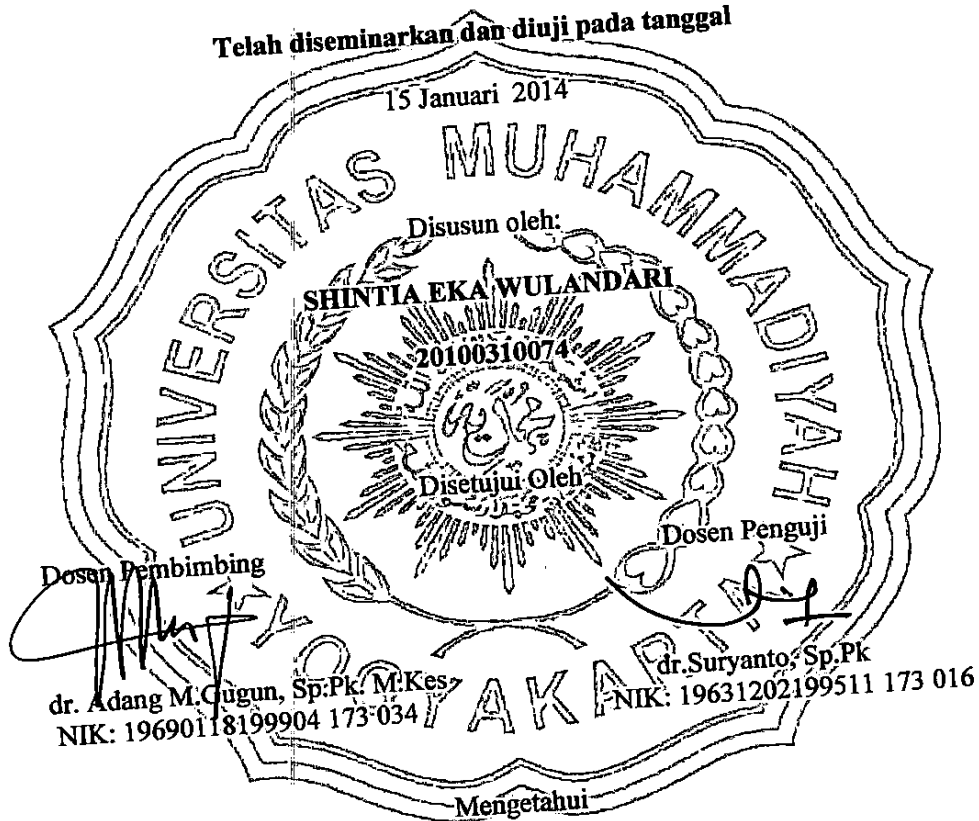 Telah diseminarkan dan diuji pada tanggal
15 Januari 2014
UNIVERSITAS MUHAMMADIYAH
YOGYAKARTA
Disusun oleh:
SHINTIA EKA WULANDARI
20100310074
Disetujui Oleh
Dosen Pembimbing
dr. Adang M.Gugun, Sp.Pk. M.Kes
NIK: 19690118199904 173 034
Dosen Penguji
dr.Suryanto, Sp.Pk
NIK: 19631202199511 173 016
Mengetahui